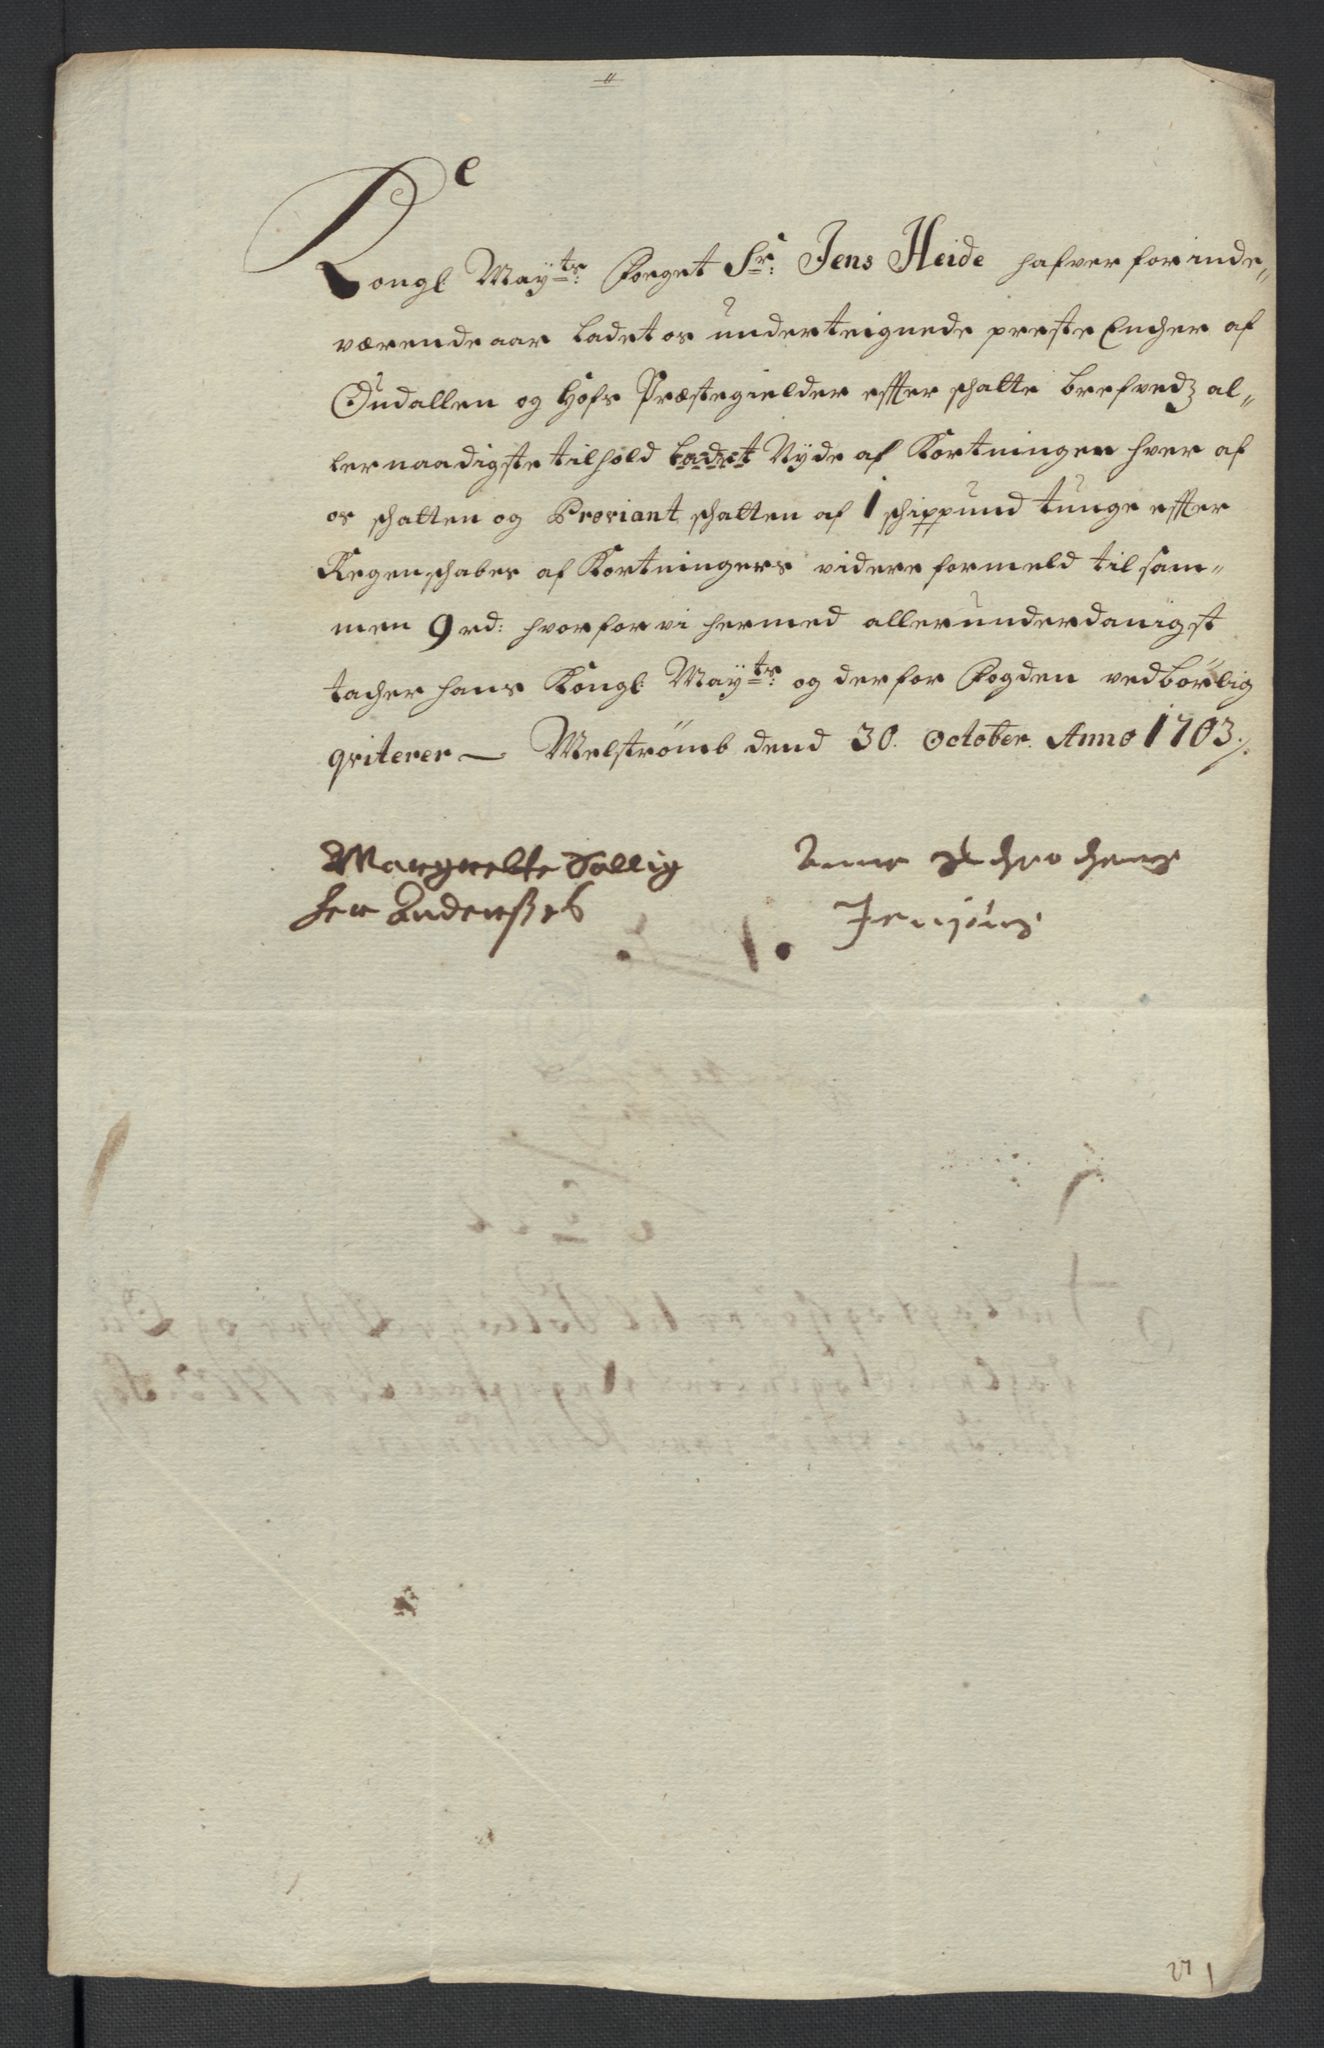 Kongl: Maÿtz: Foeget Sr: Jens Heide hafver for inde„
værende aar ladet os underteignede preste Encher af
Oudallen og Hofs Præstegielder effter schatte brefvedz al„
lernaadigste tilhold ladet Nyde af Kortningen hver af
os schatten og Proviant schatten af 1 schippund tunge effter
Regenschabes af Kortningers videre formeld til sam„
men 9 rd: hvorfor vi hermed allerunderdanigst
tacher hans Kongl: Maÿtz: og derfor Fogden vedbørlig
qviterer — Melstrømb dend 30. October. Anno 1703 ⁒
Margrette Sallig
her Anderßes
Anne
Jensøns
27